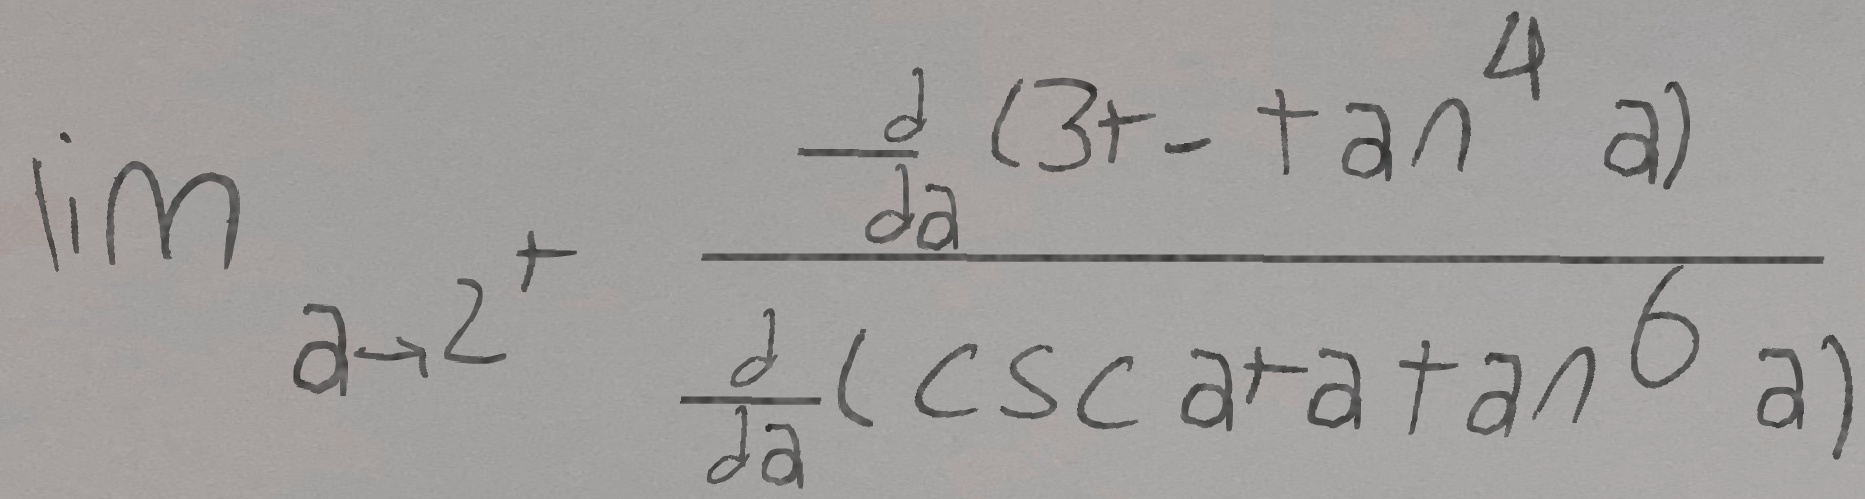 \lim_{a \to 2^+} \frac{\frac{d}{da}(3+-\tan^4 a)}{\frac{d}{da}(\csc a + a + \tan^6 a)}